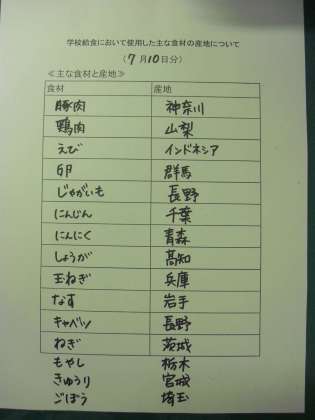 学校給食において使用した主な食材の産地について
（7月10日分）
≪主な食材と産地≫
食材 産地
豚肉 神奈川
鶏肉 山梨
えび インドネシア
卵 群馬
じゃがいも 長野
にんじん 千葉
にんにく 青森
しょうが 高知
玉ねぎ 兵庫
なす 岩手
キャベツ 長野
ねぎ 茨城
もやし 栃木
きゅうり 宮城
ごぼう 埼玉